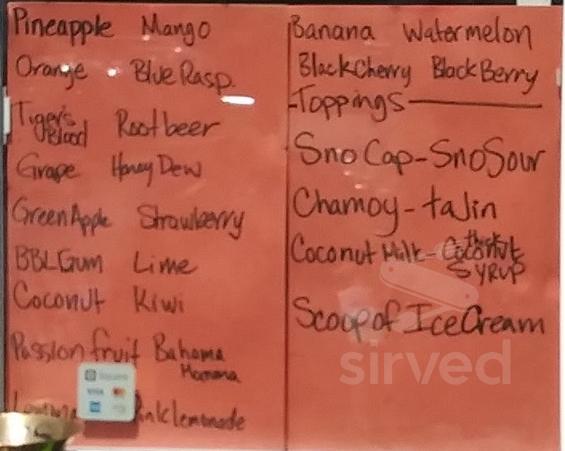 Pineapple Mango
Orange Blue Rasp.
Tiger's Blood Rootbeer
Grape Honey Dew
Green Apple Strawberry
BBL Gum Lime
Coconut Kiwi
Passion fruit Bahama Mamma
Pinklemonade
Banana Watermelon
Black Cherry Black Berry
Toppings
Sno Cap - Sno Sour
Chamoy - tajin
Coconut Milk - thick Coconut Syrup
Scoop of Ice Cream
Square
VISA
sirved